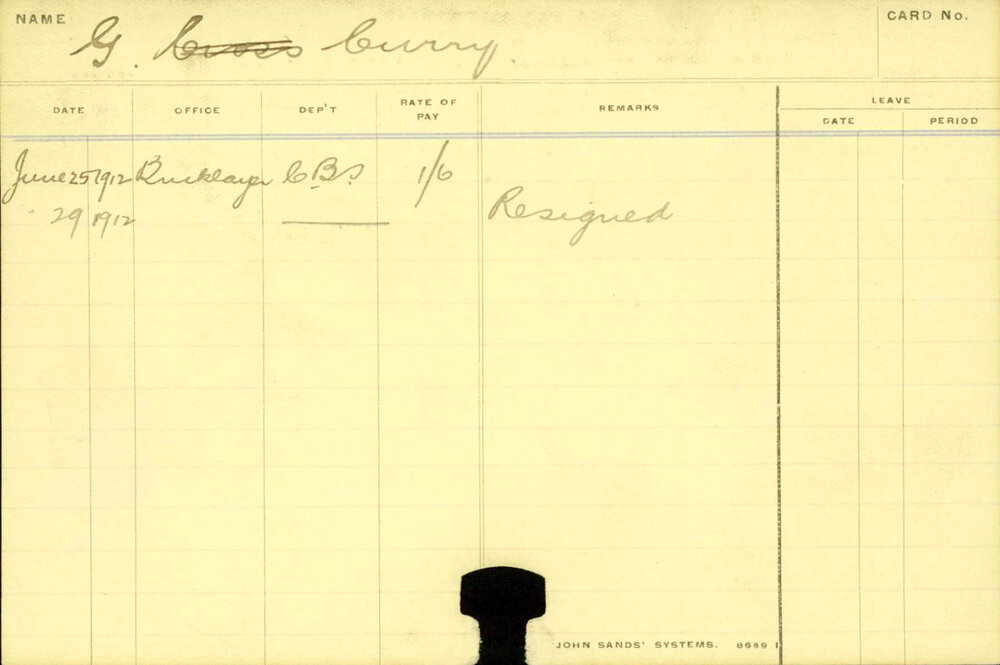 NAME G. Cross Curry. CARD No.
DATE OFFICE DEP'T RATE OF PAY REMARKS LEAVE
DATE PERIOD
June 25 1912 Bricklayer C.B.S 1/6
29 1912 Resigned
JOHN SANDS' SYSTEMS. 8699